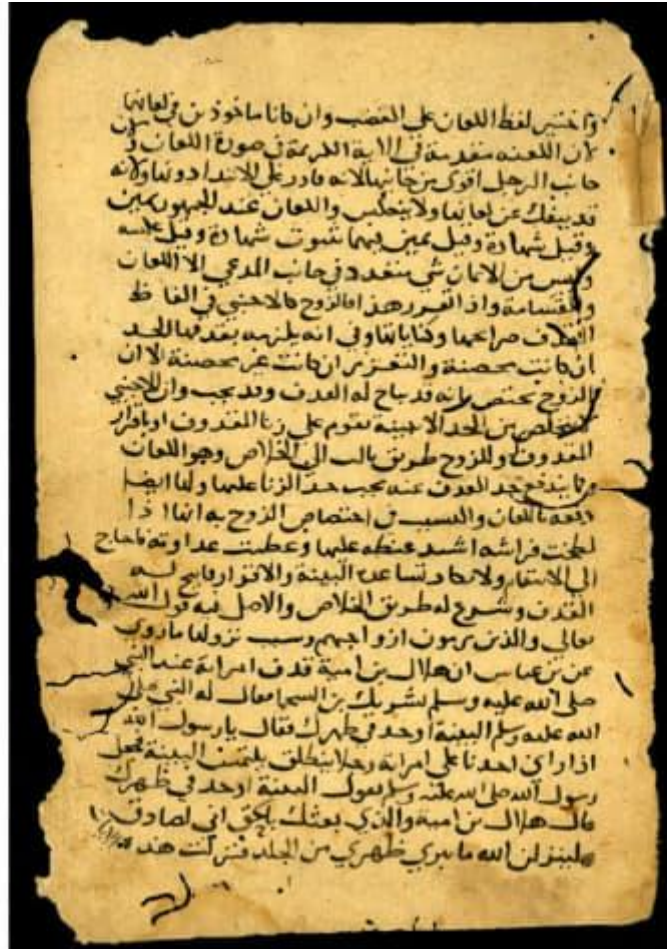 واختير لفظ اللعان علي الغضب وان كانا ماخوذين في لعانها
لان اللعنه متقدمة في الاية الكريمة في صورة اللعان ولان
جانب الرجل اقوى من جانبها لانه قادر علي الابتدا دونها ولانه
قد ينفك عن لعانها ولا ينعكس واللعان عند الجمهور يمين
وقيل شهادة وقيل يمين فيها ثبوت شهادة وقيل عكسه
وليس من الايمان شي متعدد في جانب المدعي الا اللعان
والقسامة واذا تقرر هذا فالزوج كالاجنبي في الفاظ
القذف صرايحها وكناياتها وفي انه يلزمه بقذفها الحد
ان كانت محصنة والتعزير ان كانت غير محصنة الا ان
الزوج يختص بانه قد يباح له القذف وقد يجب وان الاجنبي
لا يتخلص من الحد الا ببينة تقوم علي زنا المقذوف او باقرار
المقذوف وللزوج طريق ثالث الي الخلاص وهو اللعان
وكما يندفع حد القذف عنه يجب حد الزنا عليها ولها ايضا
دفعه باللعان والسبب في اختصاص الزوج به انها اذا
لطخت فراشه اشتد غيظه عليها وعظمت عداوته فاحتاج
الي الانتقام ولا تكاد تساعده البينة والاقرار فابيح له
القذف وشرع له طريق الخلاص والاصل فيه قول الله
تعالي والذين يرمون ازواجهم وسبب نزولها ماروي
عن بن عباس ان هلال بن امية قذف امراته عند النبي
صلي الله عليه وسلم بشريك بن السحما فقال له النبي صلي
الله عليه وسلم البينة اوحد في ظهرك فقال يا رسول الله
اذا راي احدنا علي امراته رجلا ينطلق يلتمس البينة فجعل
رسول الله صلي الله عليه وسلم يقول البينة اوحد في ظهرك
فقال هلال بن امية والذي بعثك بالحق اني لصادق
ولينزلن الله ما يبري ظهري من الجلد فنزلت هذه